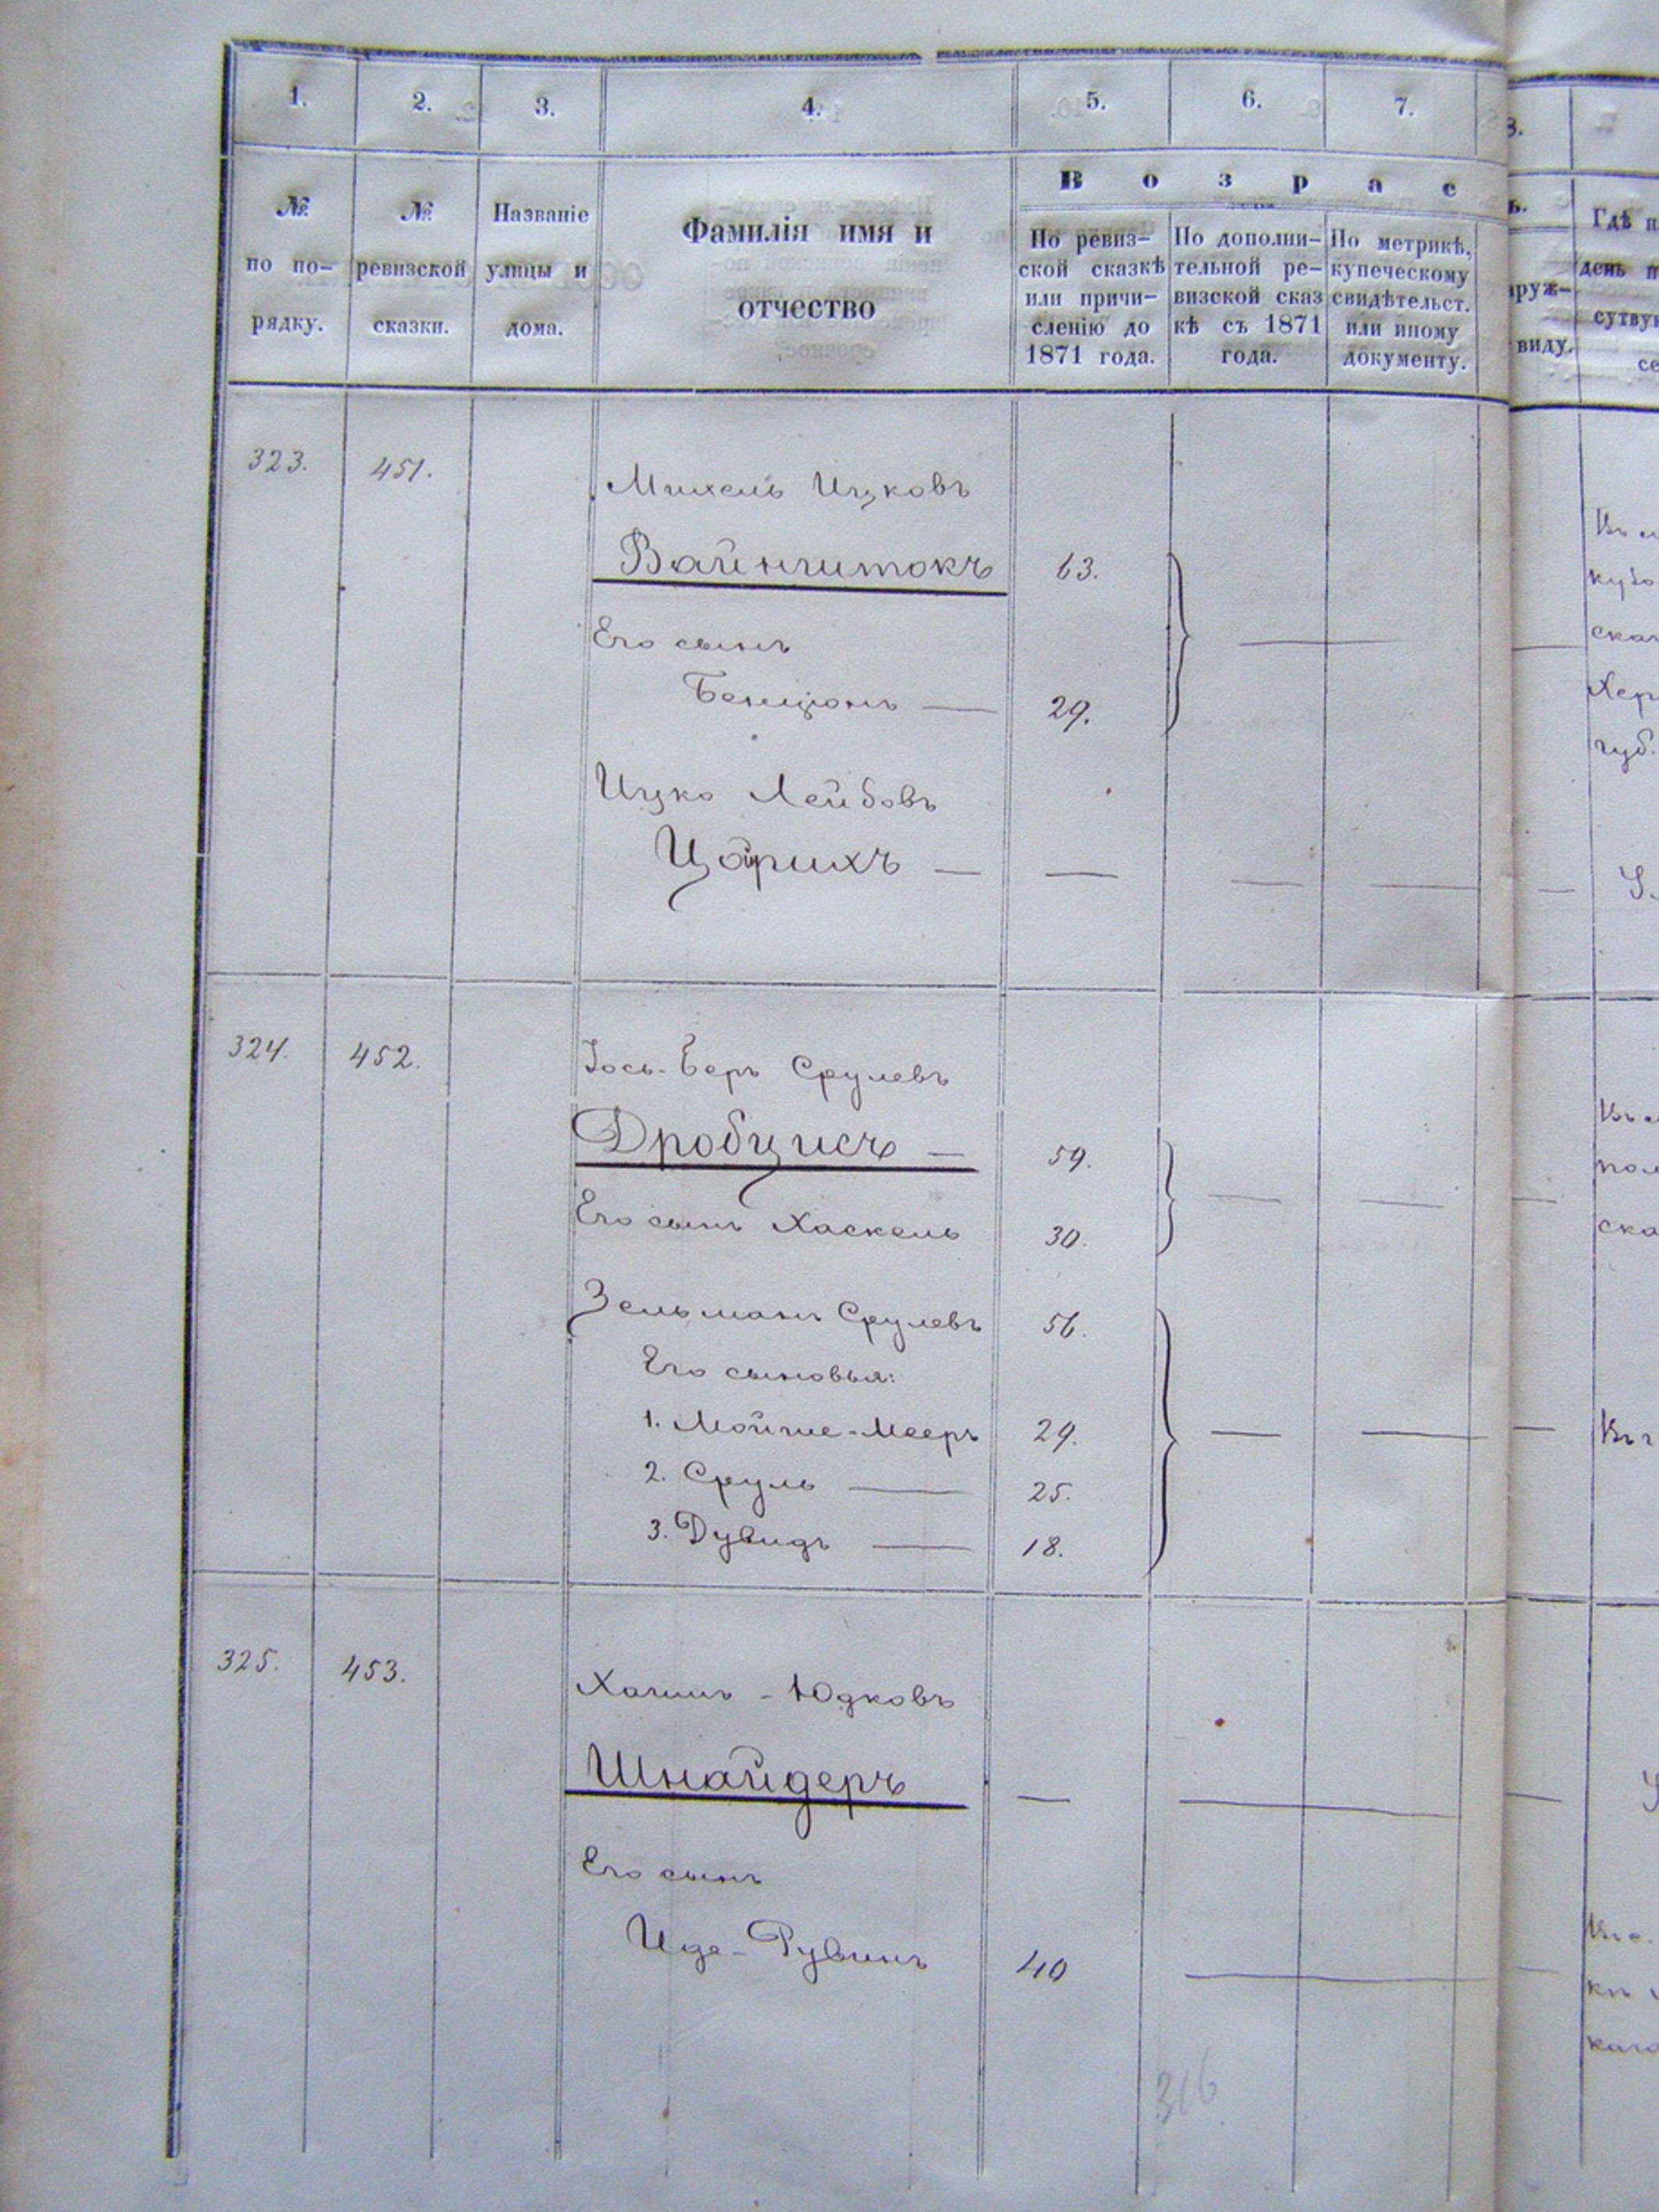 1.
2.
3.
4.
5.
6.
7.
В о з р а с
№ по по-
рядку.
№ ревизской
сказки.
Названіе
улицы и
дома.
Фамилія имя и
отчество
По ревиз-
ской сказкѣ
или причи-
сленію до
1871 года.
По дополни-
тельной ре-
визской сказ
кѣ съ 1871
года.
По метрикѣ,
купеческому
свидѣтельст.
или иному
документу.
аруж-
виду.
Гдѣ
день
323. 451. Михель Ицковъ
Вайнштокъ 63.
Его сынъ
Бенціонъ — 29.
Ицко Лейбовъ
Царихъ — —
324. 452. Іось-Беръ Срулевъ
Дробцисъ — 59.
Его сынъ Хаскель 30.
Зельманъ Срулевъ 56.
Его сыновья:
1. Мойше-Мееръ 29.
2. Сруль — 25.
3. Дувидъ — 18.
325. 453. Хаимъ-Юдковъ
Шнайдеръ —
Его сынъ
Иде-Рувинъ 40
316
Хер
губ.